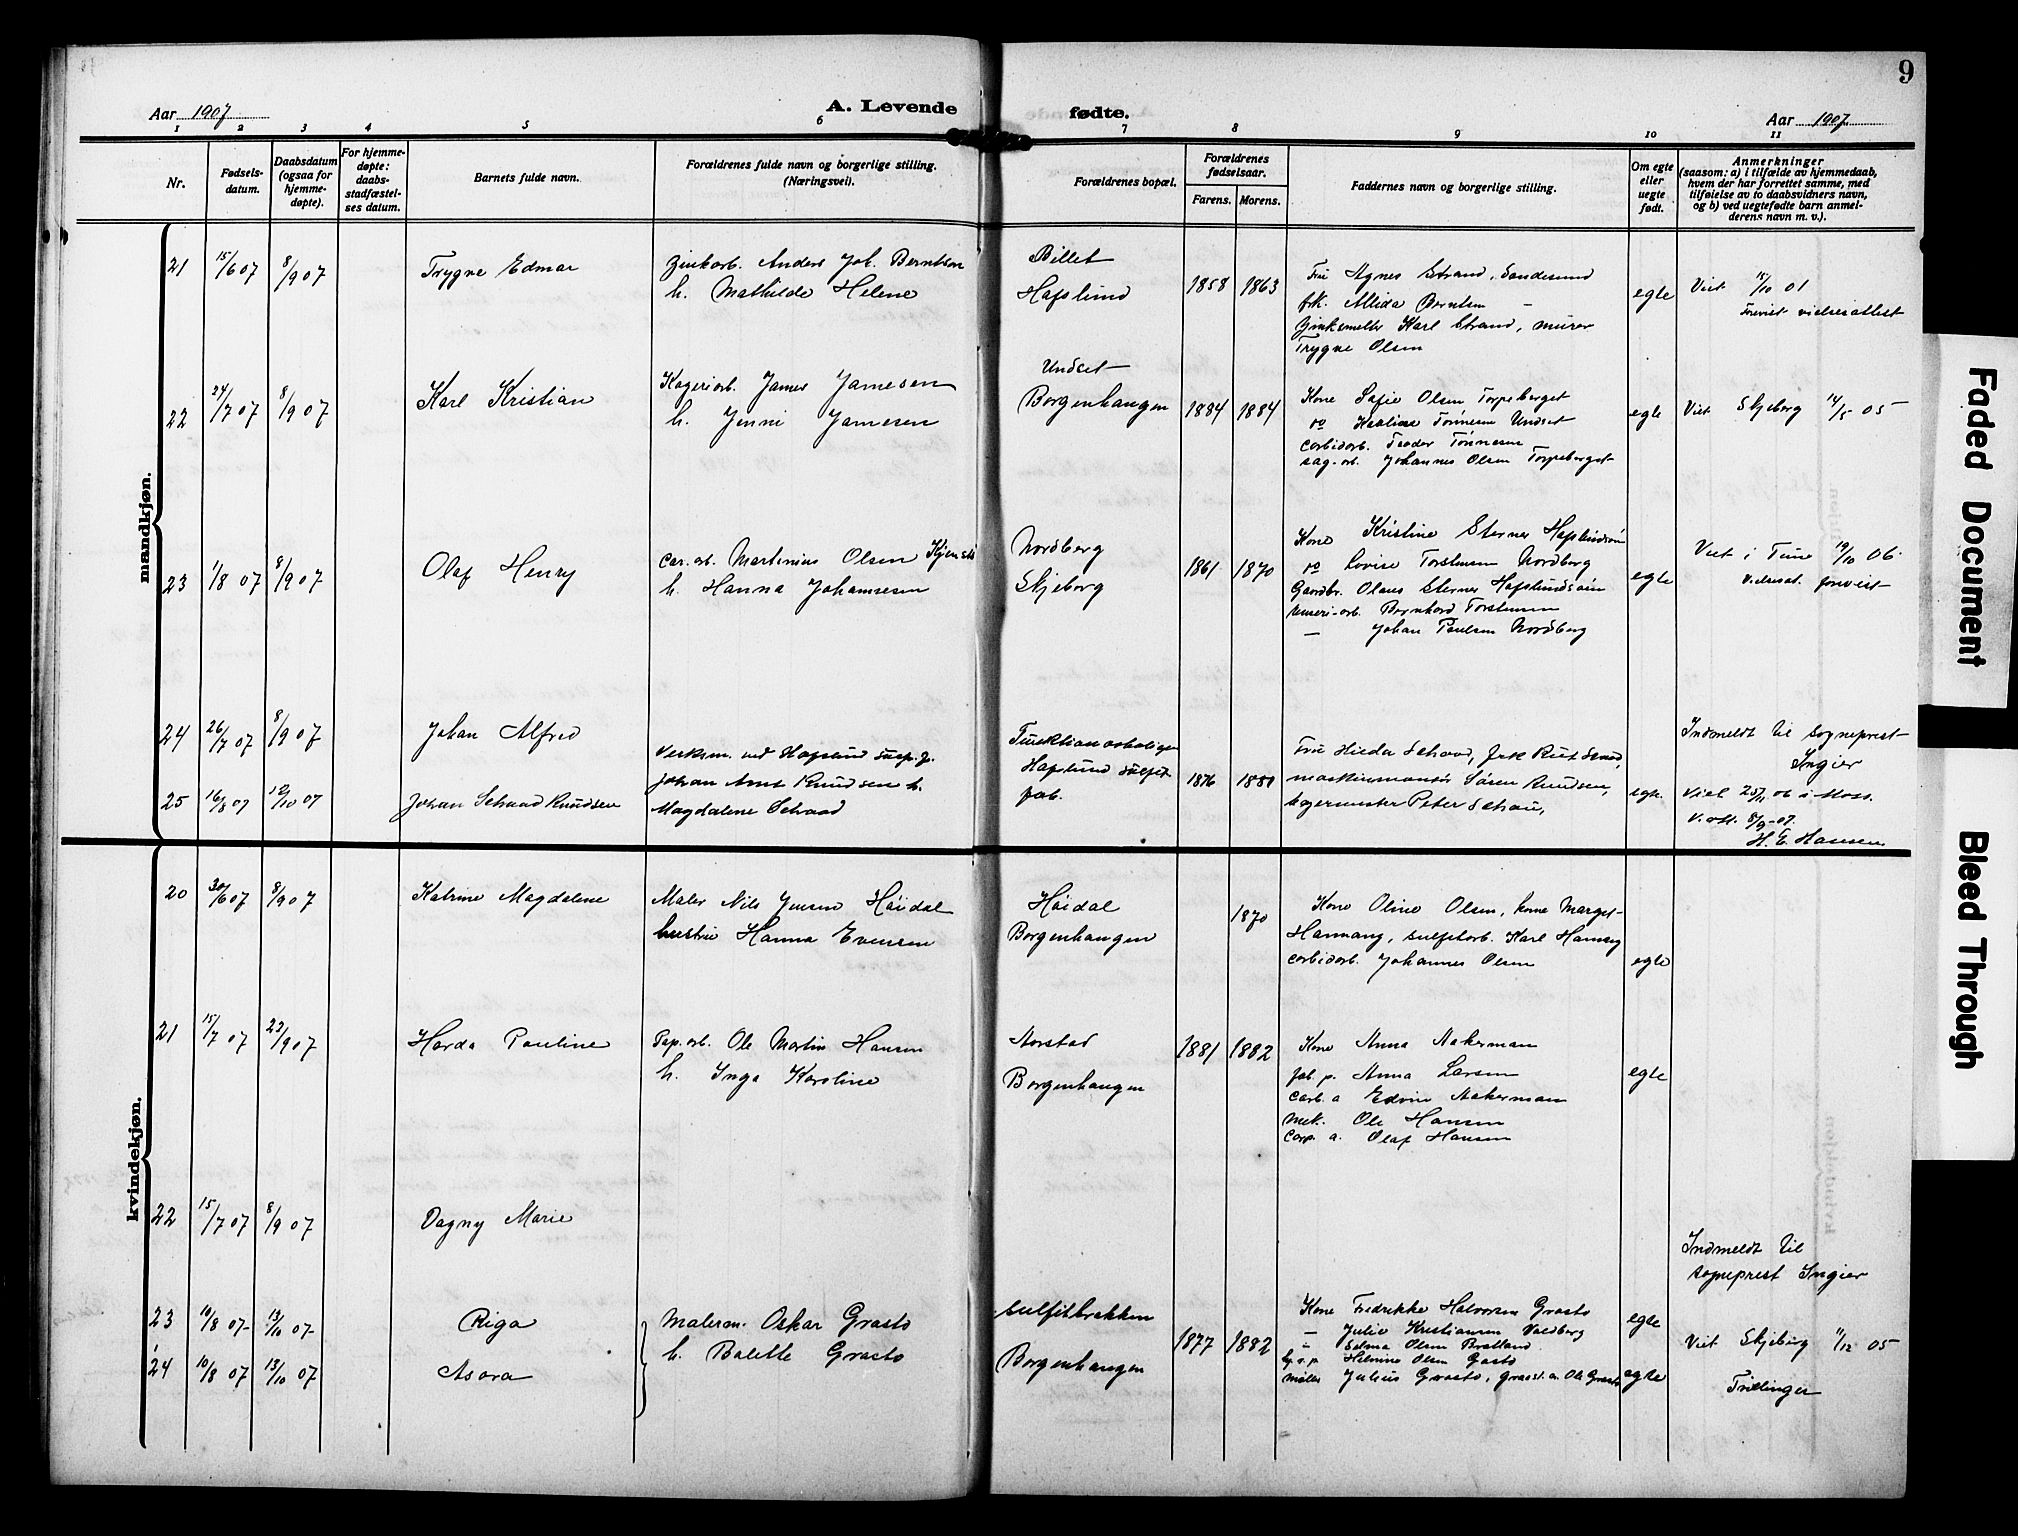 9
Aar 1907
A. Levende
fødte.
Aar 1907.
1 2 3 4 5 6 7 8 9 10 11
Nr.
Fødsels-
datum.
Daabsdatum
(ogsaa for
hjemme-
døpte).
For hjemme-
døpte:
daabs-
stadfæstel-
ses datum.
Barnets fulde navn.
Forældrenes fulde navn og borgerlige stilling.
(Næringsvei).
Forældrenes bopæl.
Forældrenes
fødselsaar.
Farens. Morens.
Faddernes navn og borgerlige stilling.
Om egte
eller
uegte
født.
Anmerkninger
(saasom: a) i tilfælde av hjemmedaab,
hvem der har forrettet samme, med
tilføielse av to daabsvidners navn,
og b) ved uegtefødte barn anmel-
derens navn m. v.).
mandkjøn.
21 15/6 07 8/9 07 Trygve Edmar
Zinkarb. Anders Joh. Berntsen
h. Mathilde Helene
Billet
Hafslund
1858 1863
Fru Agnes Strand, Sandesund
frk. Alida Berntsen –
Zinksmelter Karl Strand, murer
Trygve Olsen
egte
Viet 15/10 01
Forevist vielsesattest
22 24/7 07 8/9 07 Karl Kristian
James Jamesen
h. Jenni Jamesen
Undset
Borgenhaugen
1884 1884
Kone Sofie Olsen Torpeberget
do Tønnesen Undset
carbidarb. Teodor Tønnesen
sag.arb. Johannes Olsen Torpeberget
egte
Viet Skjeberg 14/5 05
23 1/8 07 8/9 07 Olaf Henry
Car. arb. Martinius Olsen
h. Hanna Johannesen
Nordberg
Skjeberg
1861 1870
Kone Kristine Sternes Hafslundsøen
do Lovise Torstensen Nordberg
Gaardbr. Olaus Sternes Hafslundsøen
Bernhard Torstensen
– Johan Paulsen Nordberg
egte
Viet i Tune 19/10 06.
Vielsesat. forevist
24 26/7 07 8/9 07 Johan Alfred
Indmeldt til sogneprest
Ingier
25 16/8 07 12/10 07 Johan Schaad Knudsen
Verksm. ved Hafslund
Johan Arnt Knudsen h.
Magdalene Schaad
Funktionærboligen
Hafslund Sulfit
fab.
1876 1881
Fru Hilda Schaad,
maskinmontør Søren Knudsen,
Peter Schau,
egte
Viet 25/11 06 i Moss.
V. att. 5/9-07.
H. E. Hansen
kvindekjøn.
20 30/6 07 8/9 07 Katrine Magdalene
Maler Nils Jensen Høidal
hustru Hanna Evensen
Høidal
Borgenhaugen
1870
Kone Oline Olsen, kone Marget
Hannang, sulfitarb. Karl Hannang
carbidarb. Johannes Olsen
egte
21 15/7 07 22/9 07 Harda Pauline
Pap. arb. Ole Martin Hansen
h. Inga Karoline
Aarstad
Borgenhaugen
1881 1882
Kone Anna Aakerman
fab. p. Anna Larsen
Carb. a Edvin Aakerman
mek. Ole Hansen
Carp. a. Olaf Hansen
egte
22 15/7 07 8/9 07 Dagny Marie
Indmeldt til
sogneprest Ingier
23 10/8 07 13/10 07 Riga
24 10/8 07 13/10 07 Asora
Malerm. Oskar Grasto
h. Bolette Grasto
Sulfitbrakken
Borgenhaugen
1877 1882
Kone Fredrikke Halvorsen Grasto
– Julie Kristiansen Valdberg
– Selma Olsen Bratland
Helmine Olsen Grasto
møller Julius Grasto, Ole Grasto
egte
egte
Viet Skjeberg 11/12 05
Tvillinger
Faded Document
Bleed Through